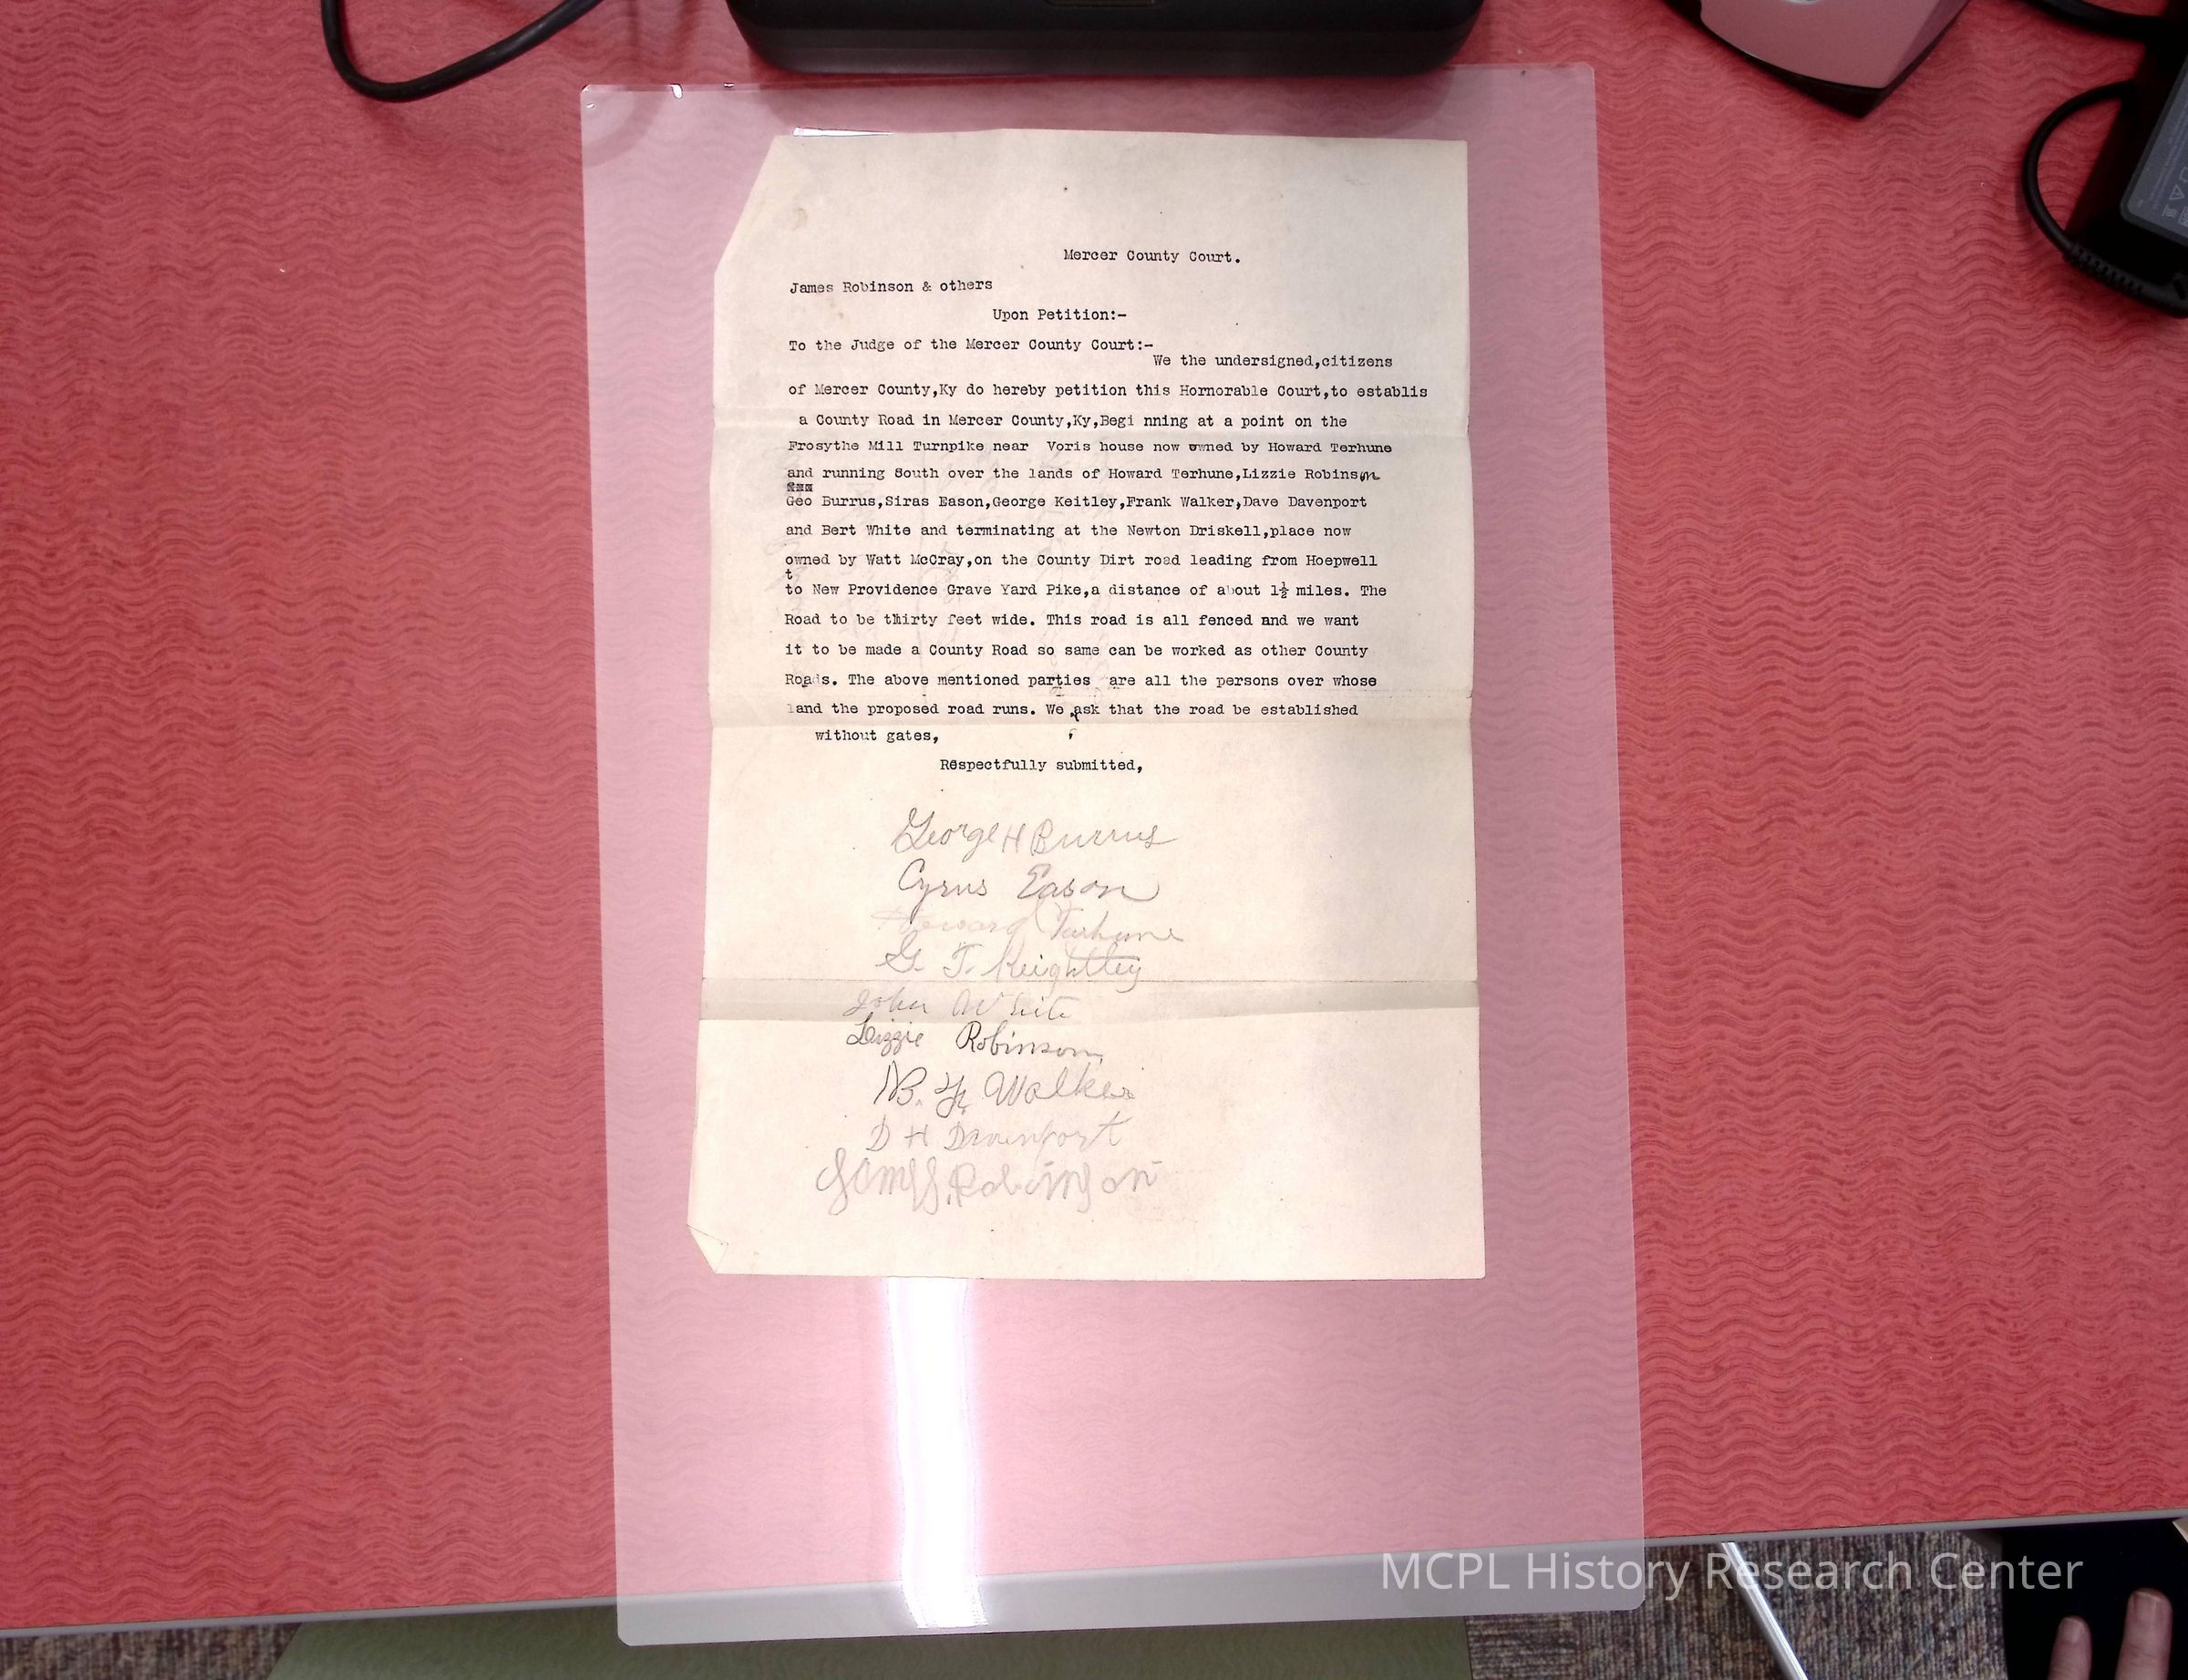 Mercer County Court.
James Robinson & others
Upon Petition:-
To the Judge of the Mercer County Court:-
We the undersigned,citizens
of Mercer County,Ky do hereby petition this Hornorable Court,to establis
a County Road in Mercer County,Ky,Begi nning at a point on the
Frosythe Mill Turnpike near Voris house now owned by Howard Terhune
and running South over the lands of Howard Terhune,Lizzie Robinson
Geo Burrus,Siras Eason,George Keitley,Frank Walker,Dave Davenport
and Bert White and terminating at the Newton Driskell,place now
owned by Watt McCray,on the County Dirt road leading from Hoepwell
t
to New Providence Grave Yard Pike,a distance of about 1½ miles. The
Road to be thirty feet wide. This road is all fenced and we want
it to be made a County Road so same can be worked as other County
Roads. The above mentioned parties are all the persons over whose
land the proposed road runs. We ask that the road be established
without gates,
Respectfully submitted,
George H Burrus
Cyrus Eason
Howard Terhune
G. T. Keightley
John White
Lizzie Robinson
B. F. Walker
D H Davenport
James Robinson
MCPL History Research Center